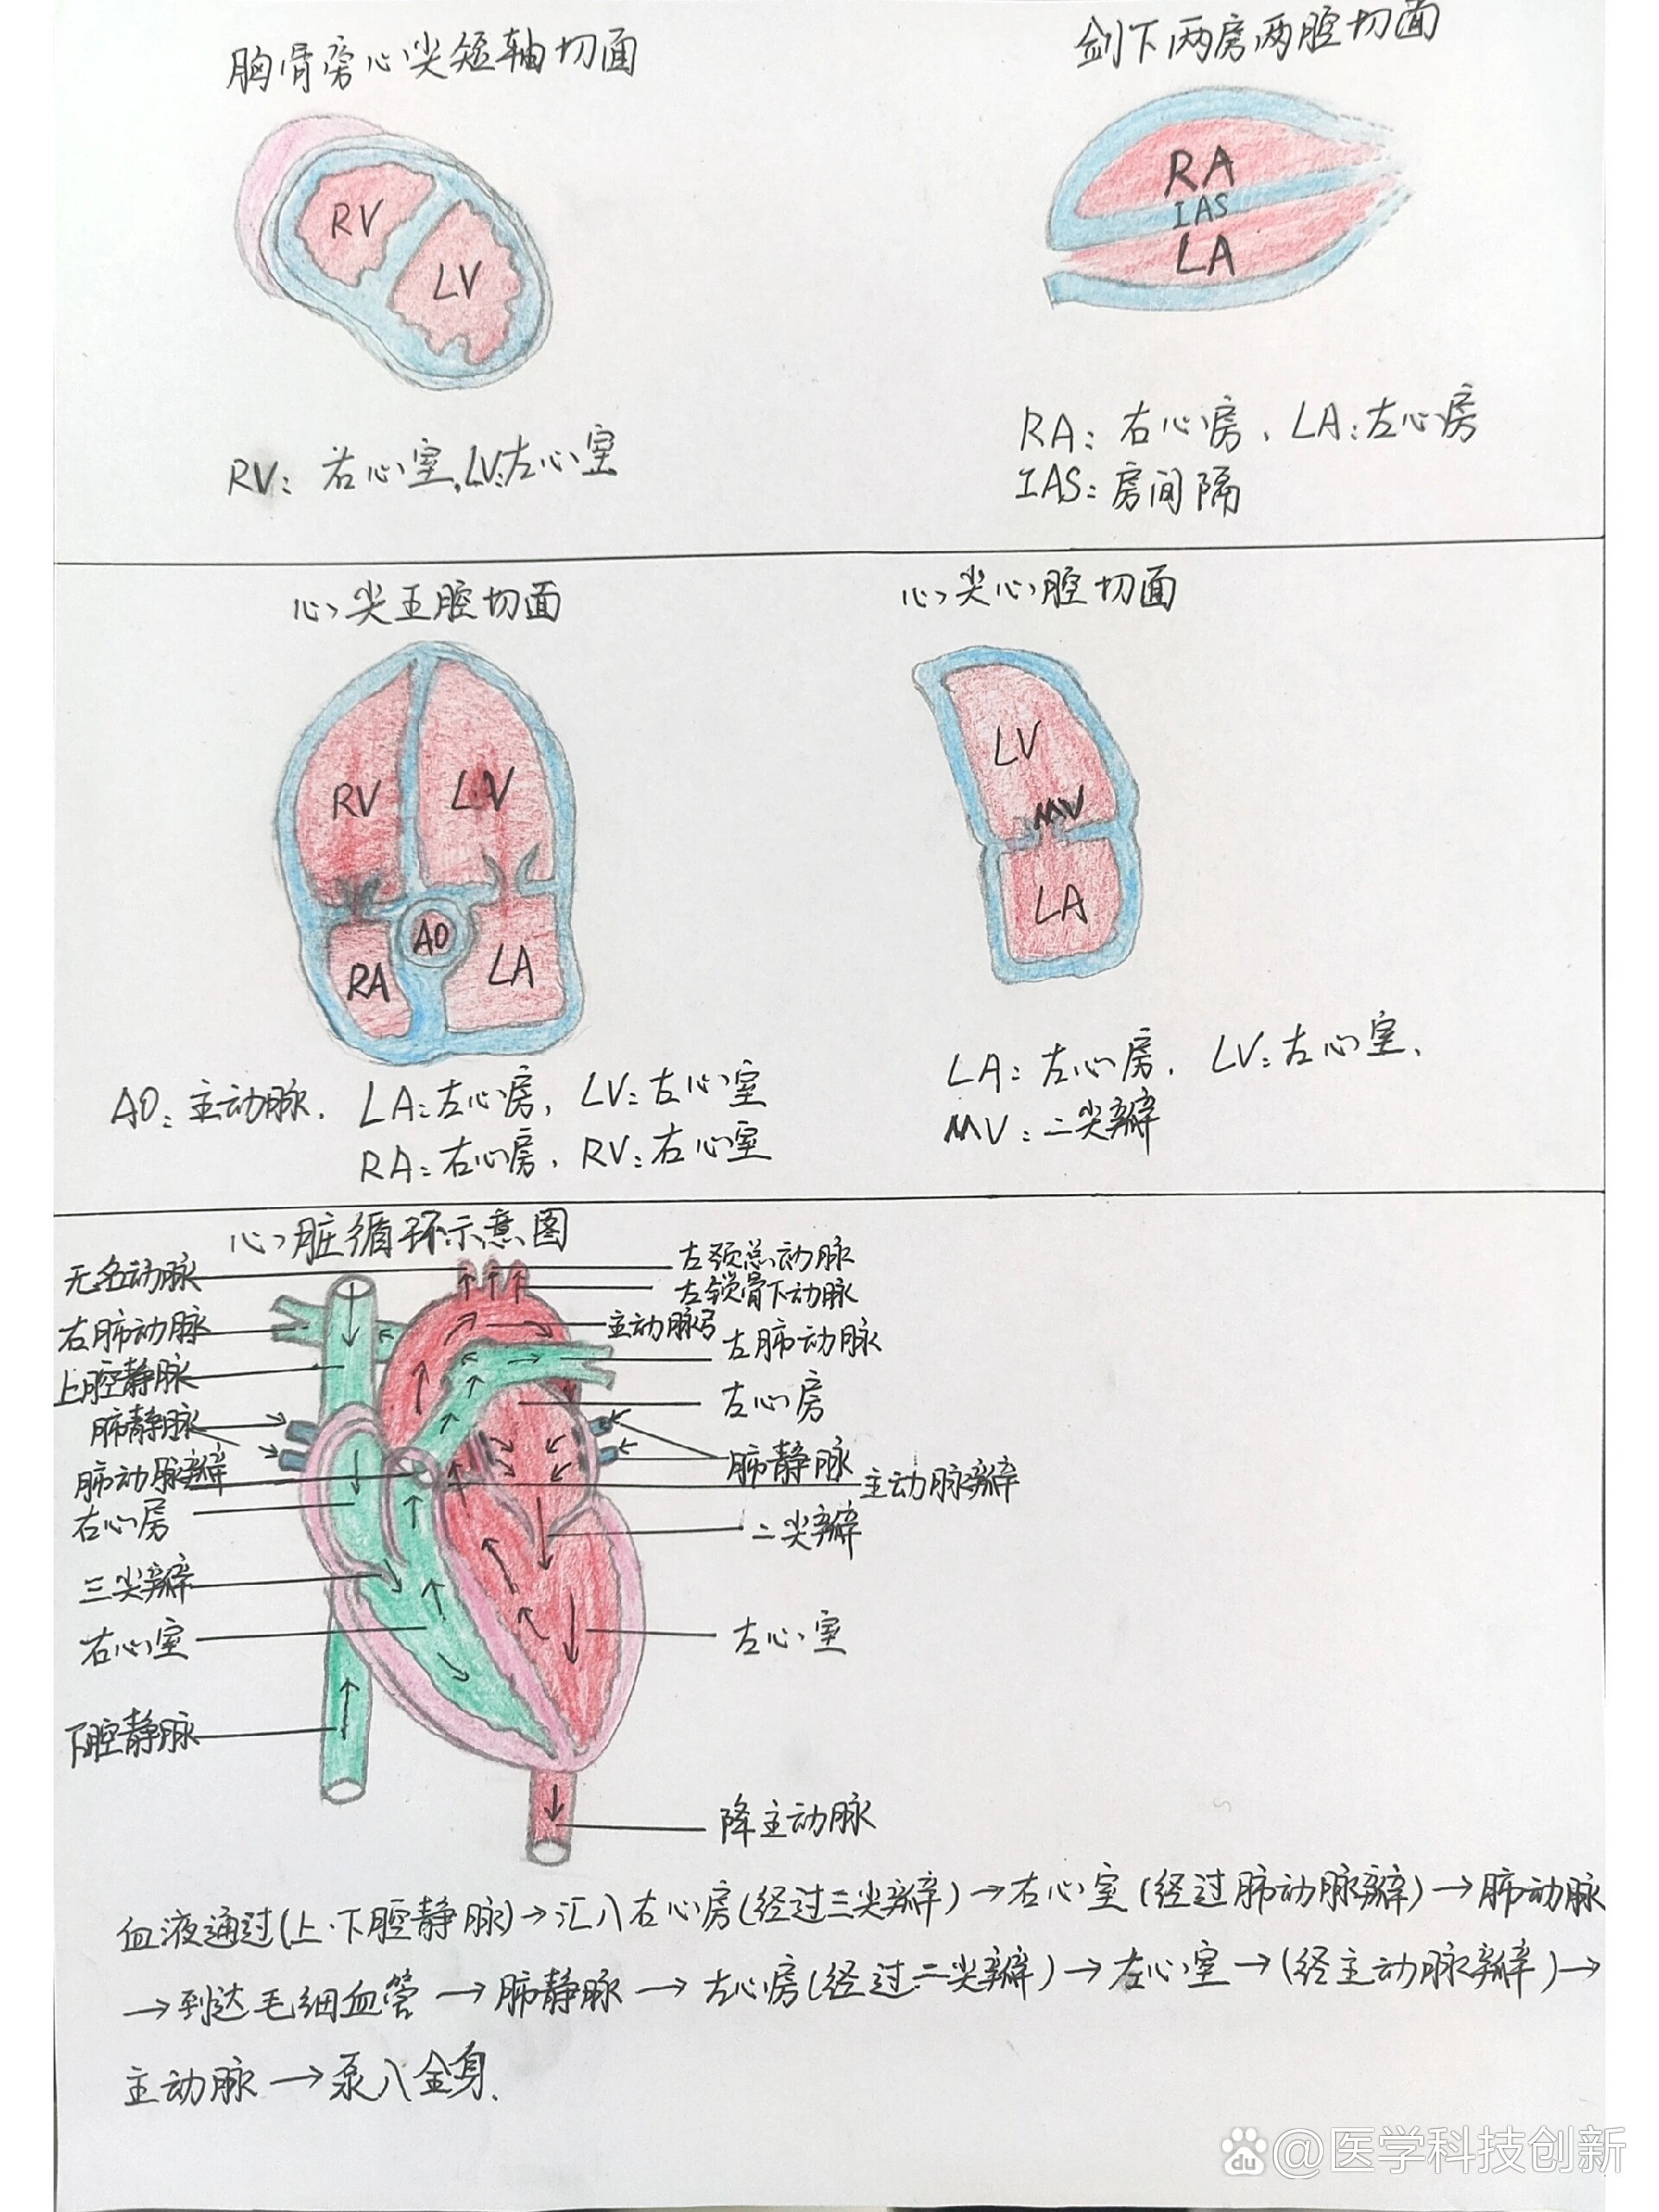 胸骨旁心尖短轴切面
RV
LV
RV：右心室，LV：左心室
剑下两房两腔切面
RA
IAS
LA
RA：右心房、LA：左心房
IAS：房间隔
心尖五腔切面
RV
LV
AO
RA
LA
AO：主动脉、LA：左心房，LV：左心室
RA：右心房、RV：右心室
心尖心腔切面
LV
MV
LA
LA：左心房、LV：左心室、
MV：二尖瓣
心脏循环示意图
无名动脉
右肺动脉
上腔静脉
肺静脉
肺动脉瓣
右心房
三尖瓣
右心室
下腔静脉
左颈总动脉
左锁骨下动脉
主动脉弓
左肺动脉
左心房
肺静脉
主动脉瓣
二尖瓣
左心室
降主动脉
血液通过(上·下腔静脉)→汇入右心房(经过三尖瓣)→右心室(经过肺动脉瓣)→肺动脉
→到达毛细血管→肺静脉→左心房(经过二尖瓣)→左心室→(经主动脉瓣)→
主动脉→泵入全身.
du @医学科技创新